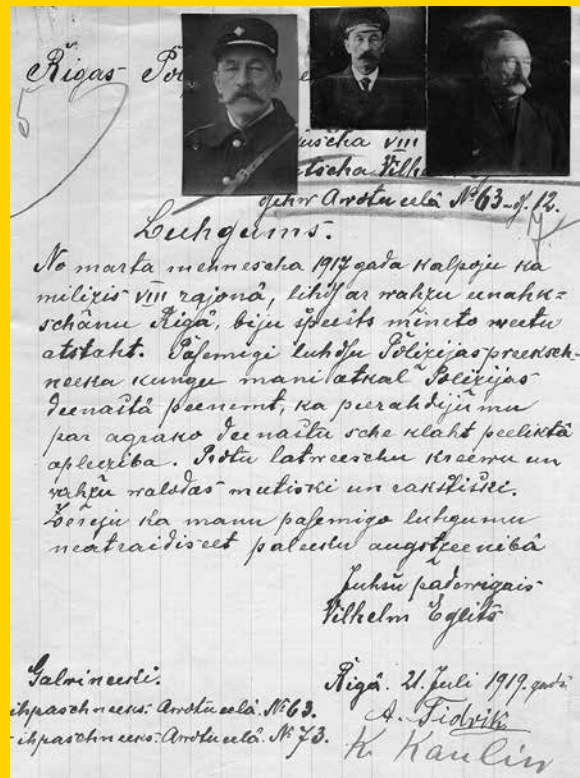 5
Rīgas Pol
uscha VIII
tscha Vilh
dzihw Awotu eelâ № 63 - dz. 12.
7
Luhgums.
No marta mehnescha 1917 gada kalpoju ka
milizis VIII rajonâ, lihdz ar wahzu eenahk=
schanu Rīgâ, biju speests mineto weetu
atstaht. Pasemigi luhdsu Polizijas preeksch-
neeka kungu mani atkal Polizijas
deenastâ peenemt, ka peerahdijumu
par agrako deenastu sche klaht peeliktâ
apleeziba. Protu latweeschu kreewu un
wahzu walodas mutiski un rakstiski.
Zereju ka manu pasemigo luhgumu
neatraidiseet paleeku augstzeenibâ
Juhsu padewigais
Vilhelm Eglits
Galwineeki.
Rīgâ. 21. Juli 1919. gadâ
ihpaschneeks Awotu eelâ. № 63.
A. Tidrik
ihpaschneeks Awotu eelâ. № 73.
K Kaulin